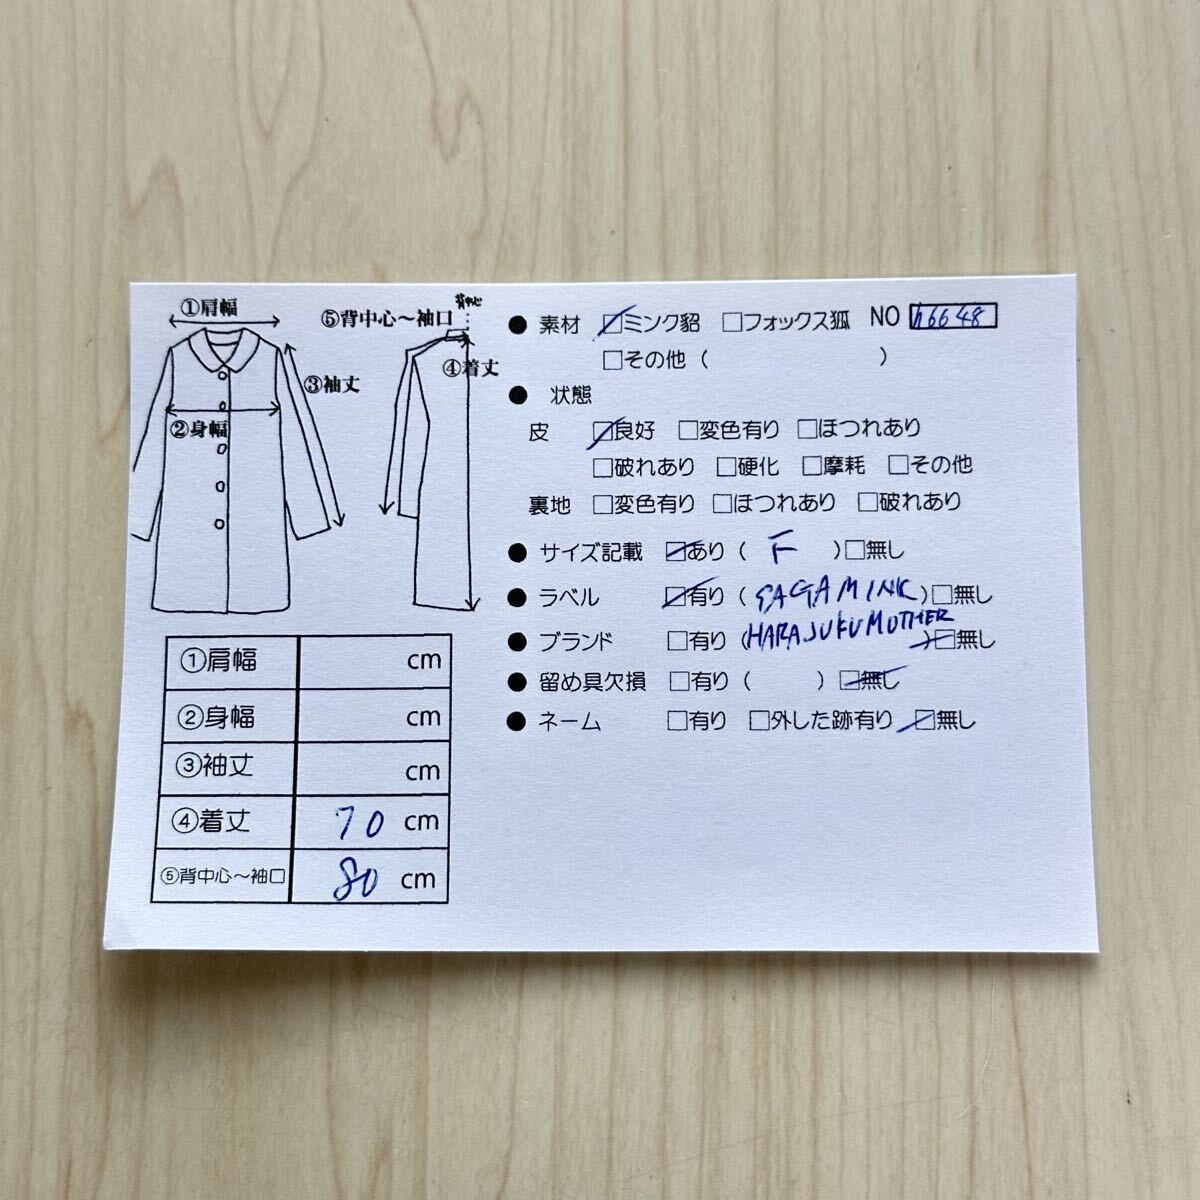 ①肩幅
⑤背中心～袖口
背中心
④着丈
③袖丈
②身幅
● 素材 ☑ミンク貂 □フォックス狐 NO h6648
□その他 ( )
● 状態
皮 ☑良好 □変色有り □ほつれあり
□破れあり □硬化 □摩耗 □その他
裏地 □変色有り □ほつれあり □破れあり
● サイズ記載 ☑あり ( F ) □無し
● ラベル ☑有り ( SAGA MINK ) □無し
● ブランド □有り (HARAJUKU MOTHER ) ☑無し
● 留め具欠損 □有り ( ) ☑無し
● ネーム □有り □外した跡有り ☑無し
①肩幅 cm
②身幅 cm
③袖丈 cm
④着丈 70 cm
⑤背中心～袖口 80 cm